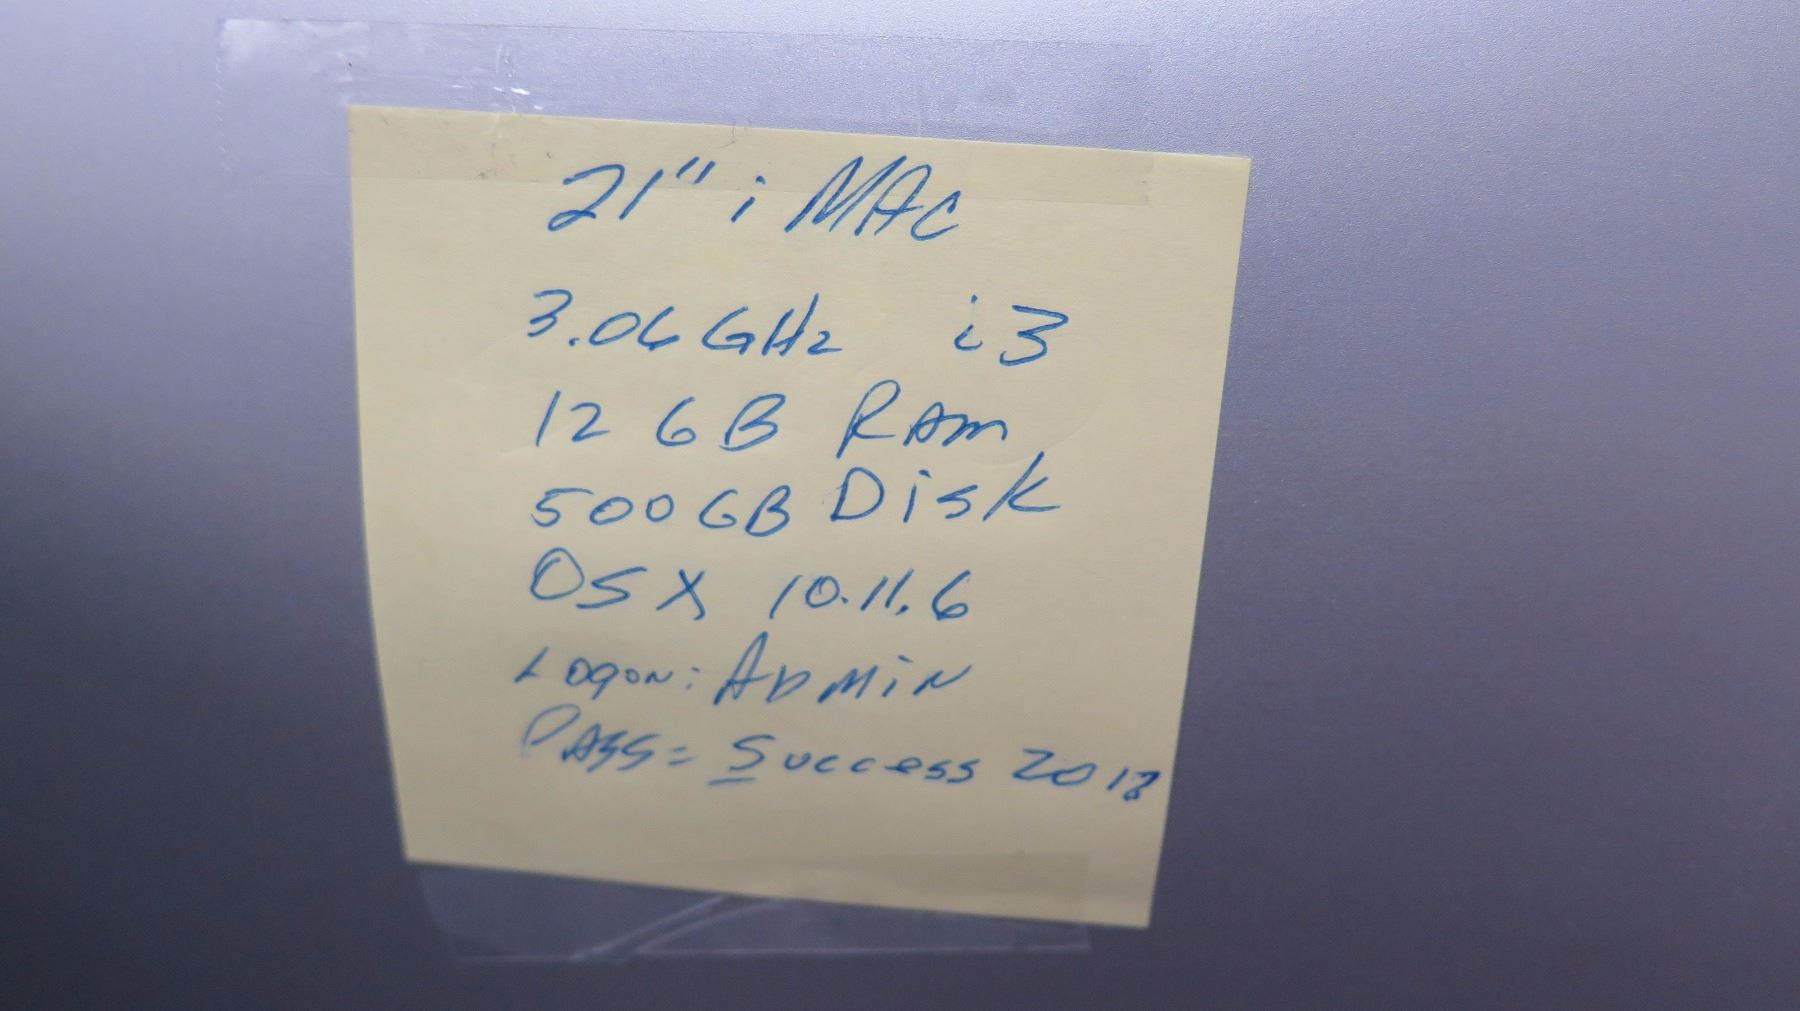 21" iMAC
3.06 GHz i3
12 GB RAM
500 GB Disk
OSX 10.11.6
Logon: ADMiN
PASS = Success